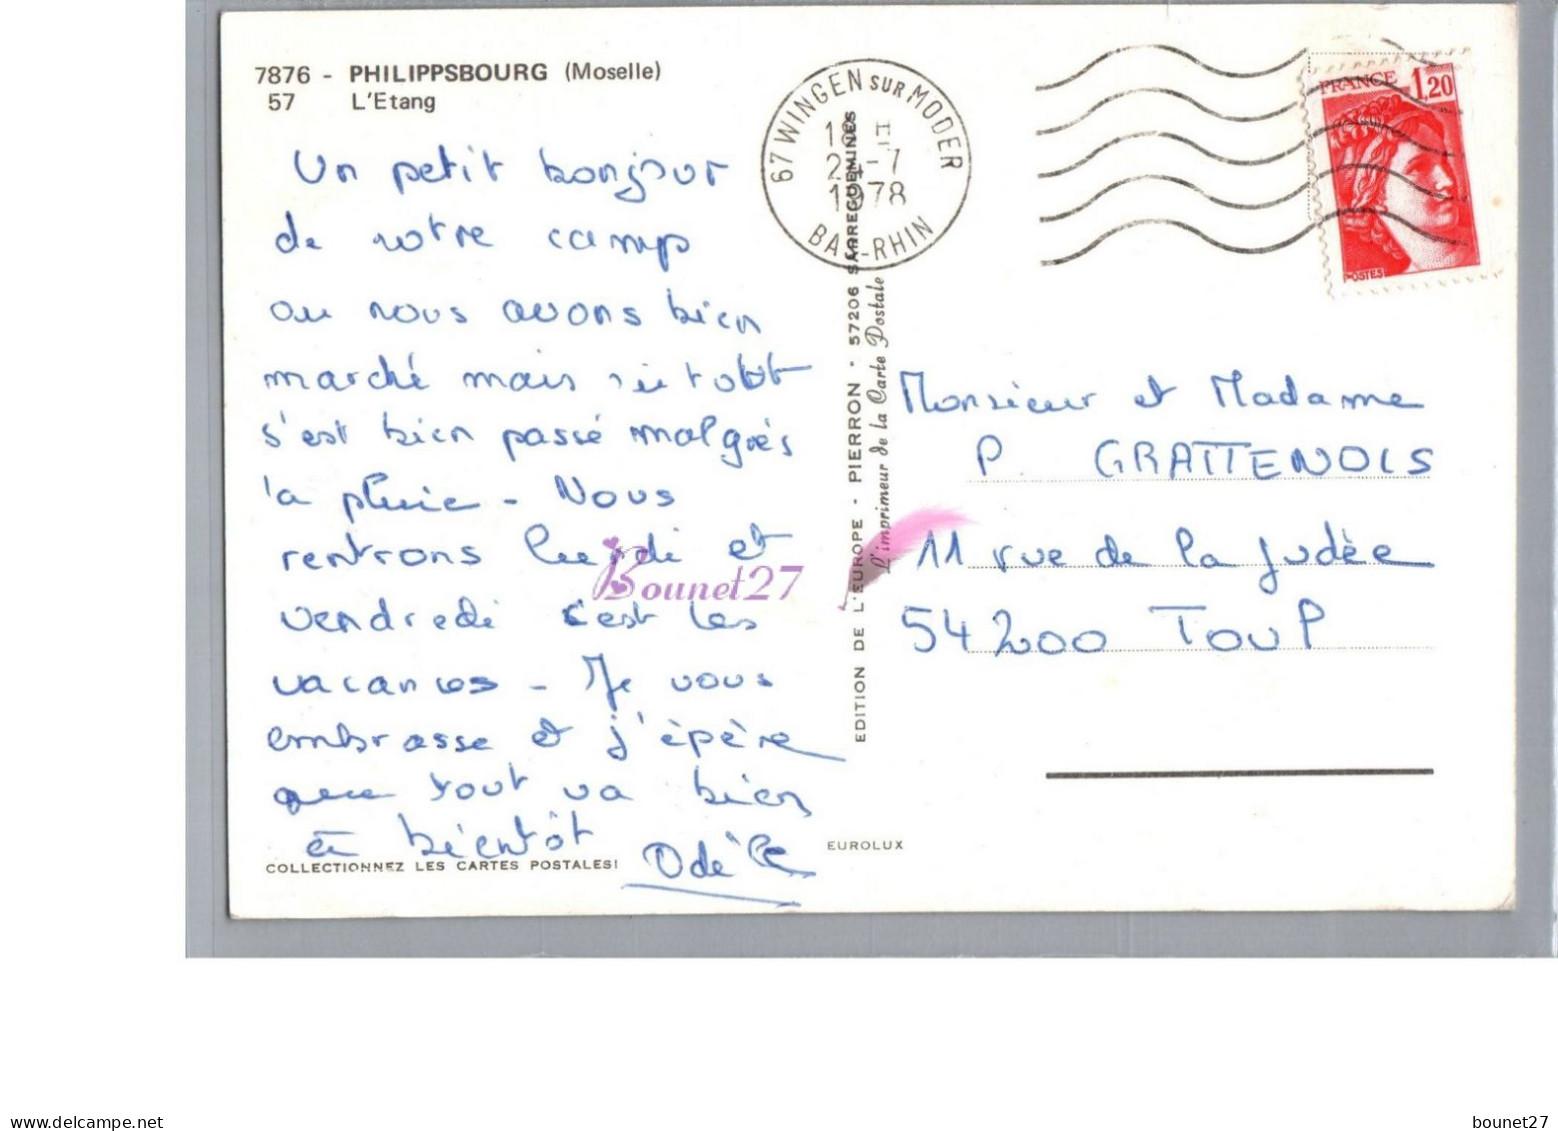 7876 - PHILIPPSBOURG (Moselle)
57 L'Etang
Un petit bonjour
de notre camp
ou nous avons bien
marché mais
s'est bien passé malgrés
la pluie - Nous
rentrons lundi et
vendredi c'est les
vacances - Je vous
embrasse et j'épère
que tout va bien
à bientôt Odèle
COLLECTIONNEZ LES CARTES POSTALES!
67 WINGEN SUR MODER
18 H
24-7
1978
BAS-RHIN
FRANCE 1,20
POSTES
EDITION DE L'EUROPE - PIERRON - 57206 SARREGUEMINES
L'imprimeur de la Carte Postale
EUROLUX
Monsieur et Madame
P GRATTENOIS
11 rue de la Judèe
54200 TOUL
Bounet27
delcampe.net
bounet27